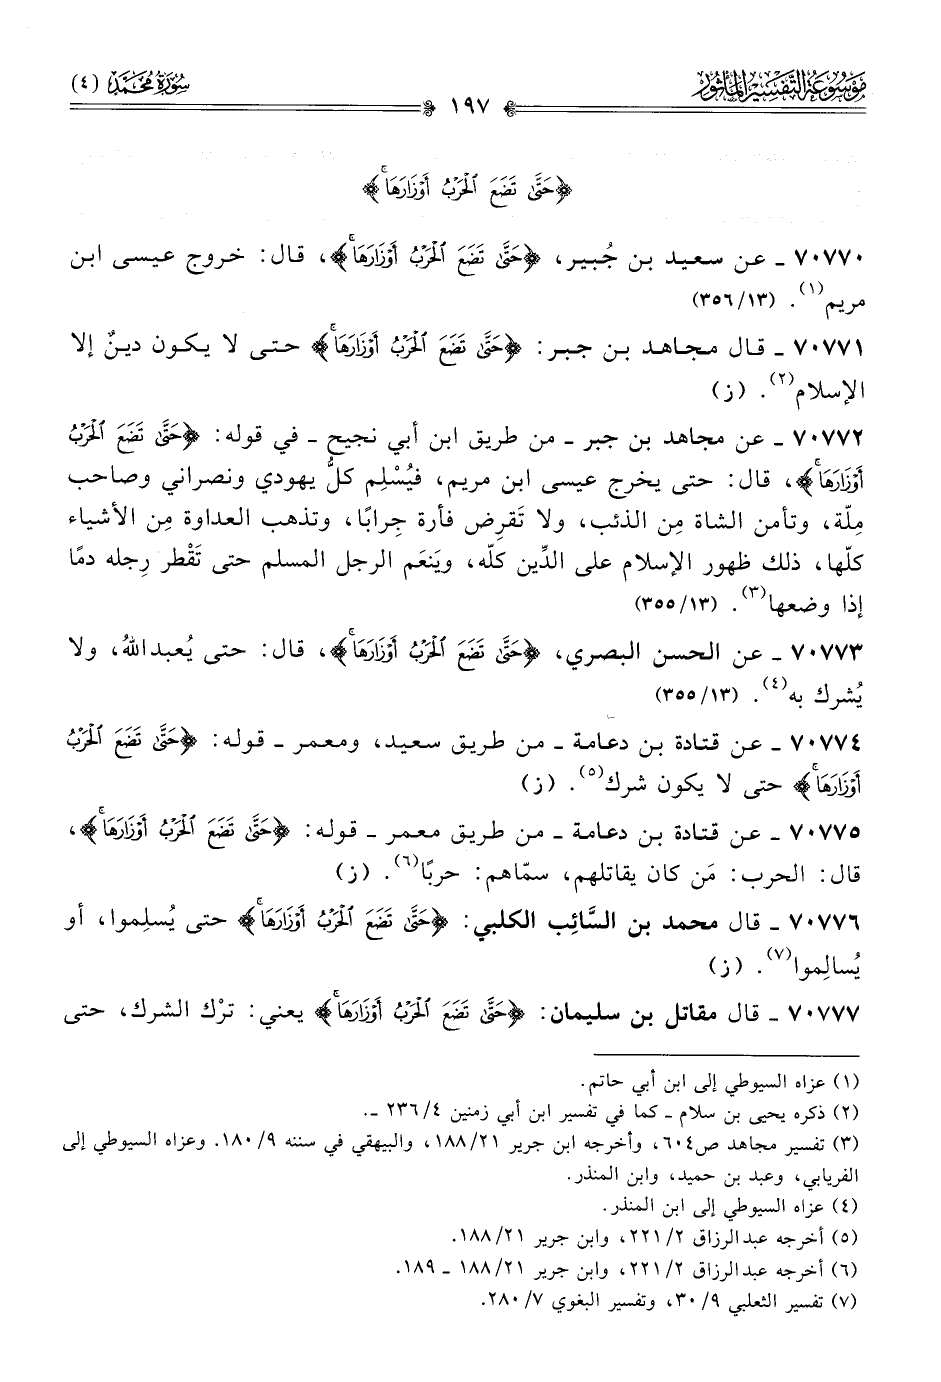 موسوعة التفسير المأثور
١٩٧
سورة محمد (٤)
﴿حَتَّىٰ تَضَعَ ٱلْحَرْبُ أَوْزَارَهَاۚ﴾
٧٠٧٧٠ ـ عن سعيد بن جُبير، ﴿حَتَّىٰ تَضَعَ ٱلْحَرْبُ أَوْزَارَهَاۚ﴾، قال: خروج عيسى ابن
مريم(١). (٣٥٦/١٣)
٧٠٧٧١ ـ قال مجاهد بن جبر: ﴿حَتَّىٰ تَضَعَ ٱلْحَرْبُ أَوْزَارَهَاۚ﴾ حتى لا يكون دينٌ إلا
الإسلام(٢). (ز)
٧٠٧٧٢ ـ عن مجاهد بن جبر ـ من طريق ابن أبي نجيح ـ في قوله: ﴿حَتَّىٰ تَضَعَ ٱلْحَرْبُ
أَوْزَارَهَاۚ﴾، قال: حتى يخرج عيسى ابن مريم، فيُسْلِم كلُّ يهودي ونصراني وصاحب
مِلّة، وتأمن الشاة مِن الذئب، ولا تَقرِض فأرة جِرابًا، وتذهب العداوة مِن الأشياء
كلّها، ذلك ظهور الإسلام على الدِّين كلّه، ويَنعَم الرجل المسلم حتى تَقْطر رِجله دمًا
إذا وضعها(٣). (٣٥٥/١٣)
٧٠٧٧٣ ـ عن الحسن البصري، ﴿حَتَّىٰ تَضَعَ ٱلْحَرْبُ أَوْزَارَهَاۚ﴾، قال: حتى يُعبد اللهُ، ولا
يُشرك به(٤). (٣٥٥/١٣)
٧٠٧٧٤ ـ عن قتادة بن دعامة ـ من طريق سعيد، ومعمر ـ قوله: ﴿حَتَّىٰ تَضَعَ ٱلْحَرْبُ
أَوْزَارَهَاۚ﴾ حتى لا يكون شرك(٥). (ز)
٧٠٧٧٥ ـ عن قتادة بن دعامة ـ من طريق معمر ـ قوله: ﴿حَتَّىٰ تَضَعَ ٱلْحَرْبُ أَوْزَارَهَاۚ﴾،
قال: الحرب: مَن كان يقاتلهم، سمّاهم: حربًا(٦). (ز)
٧٠٧٧٦ ـ قال محمد بن السَّائِب الكلبي: ﴿حَتَّىٰ تَضَعَ ٱلْحَرْبُ أَوْزَارَهَاۚ﴾ حتى يُسلِموا، أو
يُسالِموا(٧). (ز)
٧٠٧٧٧ ـ قال مقاتل بن سليمان: ﴿حَتَّىٰ تَضَعَ ٱلْحَرْبُ أَوْزَارَهَاۚ﴾ يعني: ترْك الشرك، حتى
(١) عزاه السيوطي إلى ابن أبي حاتم.
(٢) ذكره يحيى بن سلام ـ كما في تفسير ابن أبي زمنين ٢٣٦/٤ ـ.
(٣) تفسير مجاهد ص٦٠٤، وأخرجه ابن جرير ١٨٨/٢١، والبيهقي في سننه ١٨٠/٩. وعزاه السيوطي إلى
الفريابي، وعبد بن حميد، وابن المنذر.
(٤) عزاه السيوطي إلى ابن المنذر.
(٥) أخرجه عبد الرزاق ٢٢١/٢، وابن جرير ١٨٨/٢١.
(٦) أخرجه عبد الرزاق ٢٢١/٢، وابن جرير ١٨٨/٢١ ـ ١٨٩.
(٧) تفسير الثعلبي ٣٠/٩، وتفسير البغوي ٢٨٠/٧.